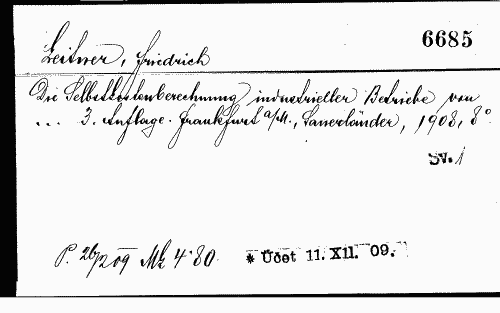 6685
Leitner, Friedrich
Die Selbstkostenberechnung industrieller Betriebe von
... 3. Auflage. Frankfurt a/M., Sauerländer, 1908, 8°
Sv. 1
P. 26/2 09 Mk 4·80. * Účet 11. XII. 09.